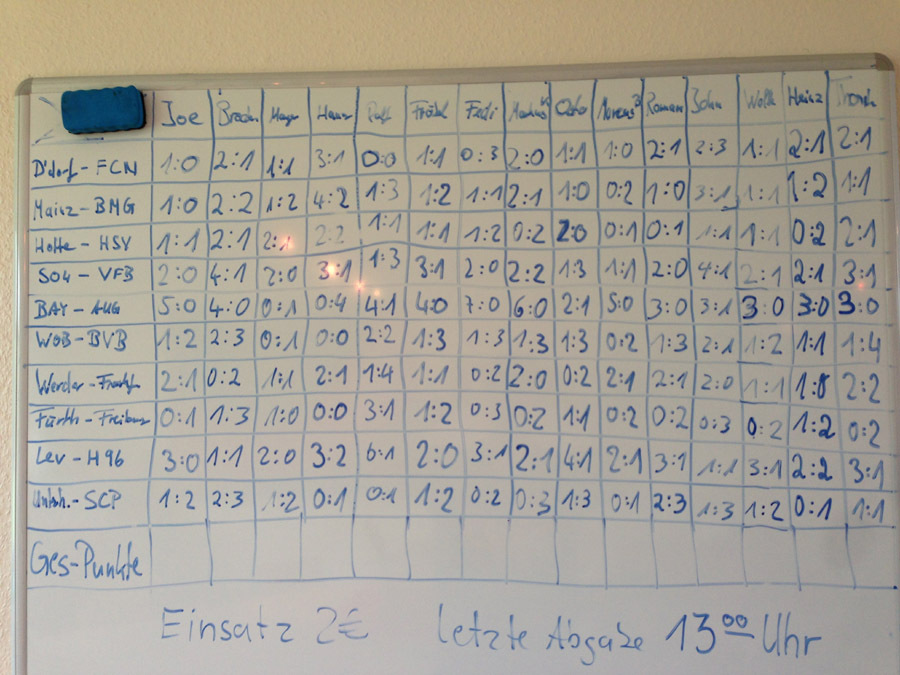 Joe Hans Fredi Otto Roman John Wolle Heinz
D'dorf - FCN 1:0 2:1 1:1 3:1 0:0 1:1 0:3 2:0 1:1 1:0 2:1 2:3 1:1 2:1 2:1
Mainz - BMG 1:0 2:2 1:2 4:2 1:3 1:2 1:1 2:1 1:0 0:2 1:0 3:1 1:1 1:2 1:1
Hoffe - HSV 1:1 2:1 2:1 2:2 1:1 1:1 1:2 0:2 2:0 0:1 0:1 1:1 1:1 0:2 2:1
S04 - VFB 2:0 4:1 2:0 3:1 1:3 3:1 2:0 2:2 1:3 1:1 2:0 4:1 2:1 2:1 3:1
BAY - AUG 5:0 4:0 0:1 0:4 4:1 4:0 7:0 6:0 2:1 5:0 3:0 3:1 3:0 3:0 3:0
WOB - BVB 1:2 2:3 0:1 0:0 2:2 1:3 1:3 1:3 1:3 0:2 1:3 2:1 1:2 1:1 1:4
Werder - 2:1 0:2 1:1 2:1 1:4 1:1 0:2 2:0 0:2 2:1 2:1 2:0 1:1 2:2
Fürth - Freiburg 0:1 1:3 1:0 0:0 3:1 1:2 0:3 0:2 1:1 0:2 0:2 0:3 0:2 1:2 0:2
Lev - H96 3:0 1:1 2:0 3:2 2:0 3:1 2:1 4:1 2:1 3:1 1:1 3:1 2:2 3:1
- SCP 1:2 2:3 1:2 0:1 0:1 1:2 0:2 0:3 1:3 0:1 2:3 1:3 1:2 0:1 1:1
Ges-Punkte
Einsatz 2€ letzte Abgabe 13⁰⁰ Uhr